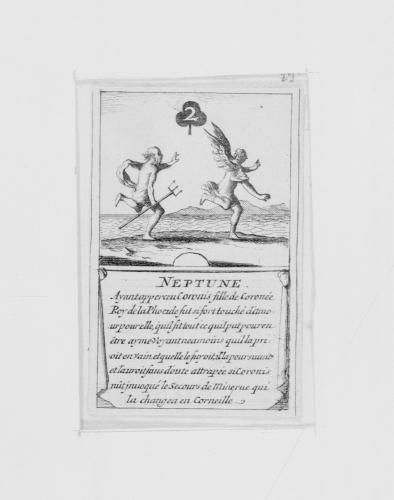 2
NEPTUNE.
Ayant apperceu Coronis fille de Coronée
Roy de la Phocide fut si fort touché d'amo
ur pour elle, qu'il fit tout ce qu'il put pour en
être aymé Voyant neamoins qu'il la pri
oit en vain et qu'elle le fuyoit, il la poursuivit
et l'auroit sans doute attrapée si Coronis
n'ût invoqué le Secours de Minerve qui
la changea en Corneille